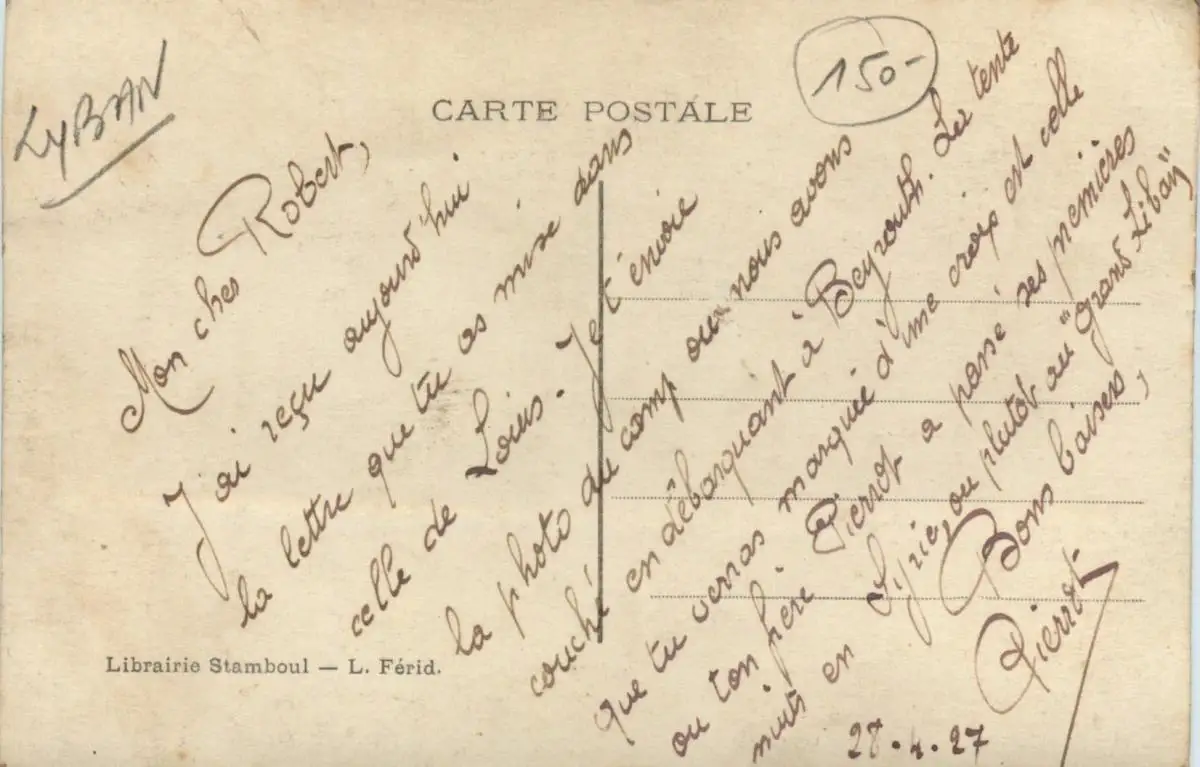 LYBAN
150-
CARTE POSTALE
Mon cher Robert,
J'ai reçu aujourd'hui
la lettre que tu as mise dans
celle de Louis. Je t'envoie
la photo du camp ou nous avons
couché en débarquant à Beyrouth. La tente
que tu verras marquée d'une croix est celle
ou ton frère Pierrot a passé ses premières
nuits en Syrie, ou plutot au "Grand Liban"
Bons baisers,
Pierrot
28.4.27
Librairie Stamboul — L. Férid.